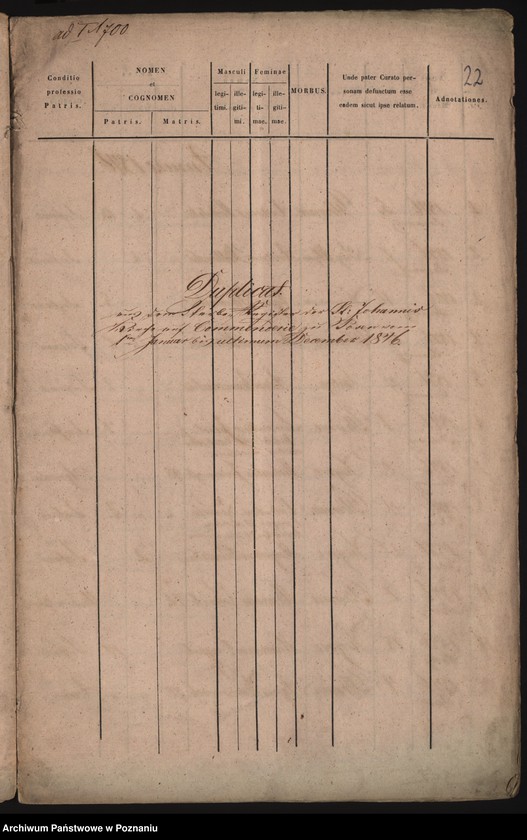 ad I A 700
22
Conditio
professio
Patris.
NOMEN
et
COGNOMEN
Patris.
Matris.
Masculi
legi-
timi.
ille-
giti-
mi.
Feminae
legi-
ti-
mae.
ille-
giti-
mae.
MORBUS.
Unde pater Curato per-
sonam defunctam esse
eodem sicut ipse relatum.
Adnotationes.
Duplicat
aus dem Sterbe Register der St: Johannis
Commenderie zu Posen vom
1ten Januar bis ultimum December 1846.
Archiwum Państwowe w Poznaniu